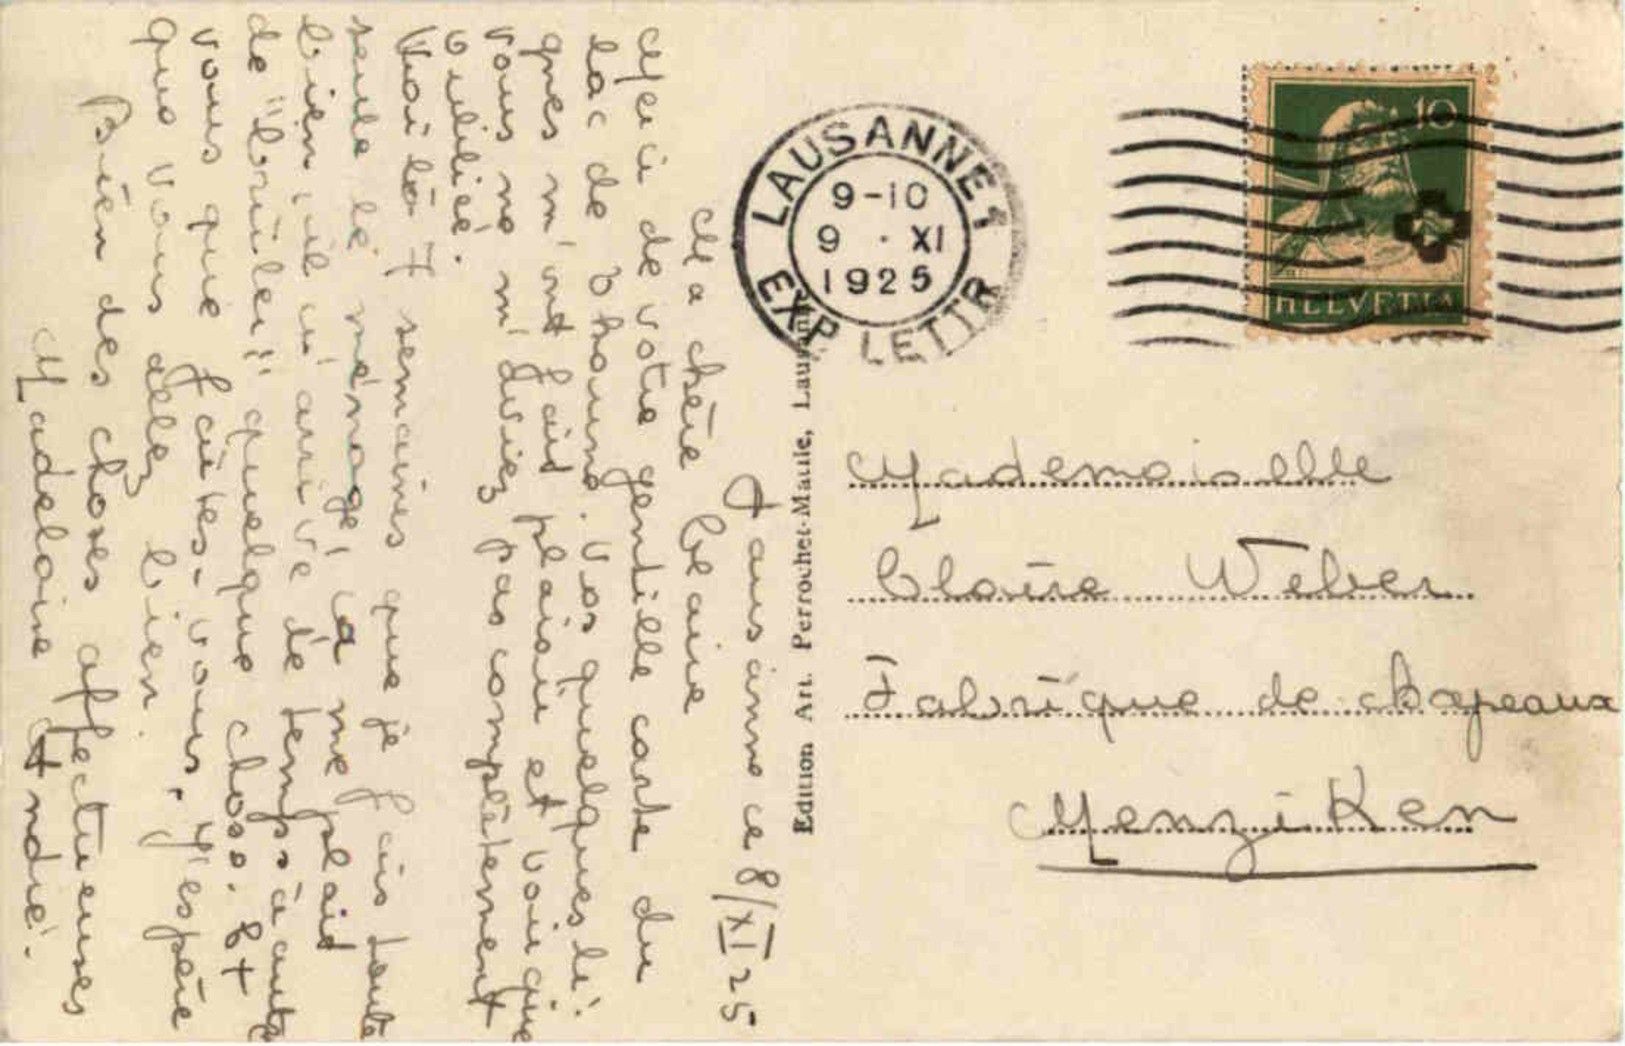 Lausanne ce 8/XI 25
Ma chère Claire
Merci de votre gentille carte du
lac de Thoune. Vos quelques li-
gnes m'ont fait plaisir et voir que
vous ne m'aviez pas complètement
oubliée.
Voilà 7 semaines que je suis toute
seule le ménage, ça me plaît
bien, il m'arrive de temps à autre
de "brûler" quelque chose. Et
vous que faites-vous, j'espère
que vous allez bien.
Bien des choses affectueuses
Madelaine André.
Edition Art. Perrochet-Matile, Lausanne
LAUSANNE 1
9-10
9 · XI
1925
EXP. LETTR
10
HELVETIA
Mademoiselle
Claire Weber
Fabrique de chapeaux
Menziken